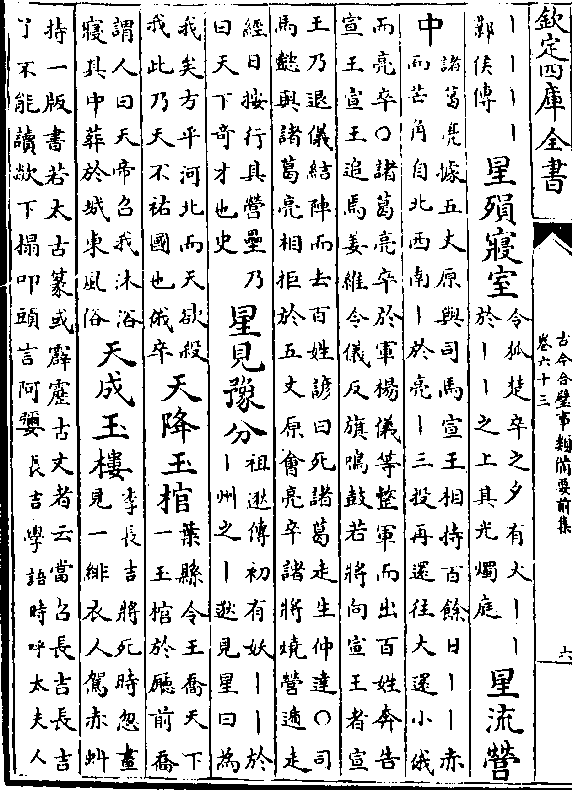 欽定四庫全書
古今合璧事類備要前集
卷六十三
六
丨丨丨丨
鄴侯傳
星殞寢室
令狐楚卒之夕有大丨丨
於丨丨之上其光燭庭
星流營
中
諸葛亮據五丈原與司馬宣王相持百餘日丨丨赤
而芒角自北西南丨於亮丨三投再還往大還小俄
而亮卒〇諸葛亮卒於軍楊儀等整軍而出百姓奔告
宣王宣王追焉姜維令儀反旗鳴鼓若將向宣王者宣
王乃退儀結陣而去百姓諺曰死諸葛走生仲達〇司
馬懿與諸葛亮相拒於五丈原會亮卒諸將燒營遁走
經日按行其營壘乃
曰天下奇才也史
星見豫分
祖逖傳初有妖丨丨於
丨州之丨逖見星曰為
我矣方平河北而天欲殺
我此乃天不祐國也俄卒
天降玉棺
葉縣令王喬天下
一玉棺於廳前喬
謂人曰天帝召我沐浴
寢其中葬於城東風俗
天成玉樓
李長吉將死時忽晝
見一緋衣人駕赤虬
持一版書若太古篆或霹靂古文者云當召長吉長吉
了不能讀欻下榻叩頭言阿㜷長吉學語時呼太夫人